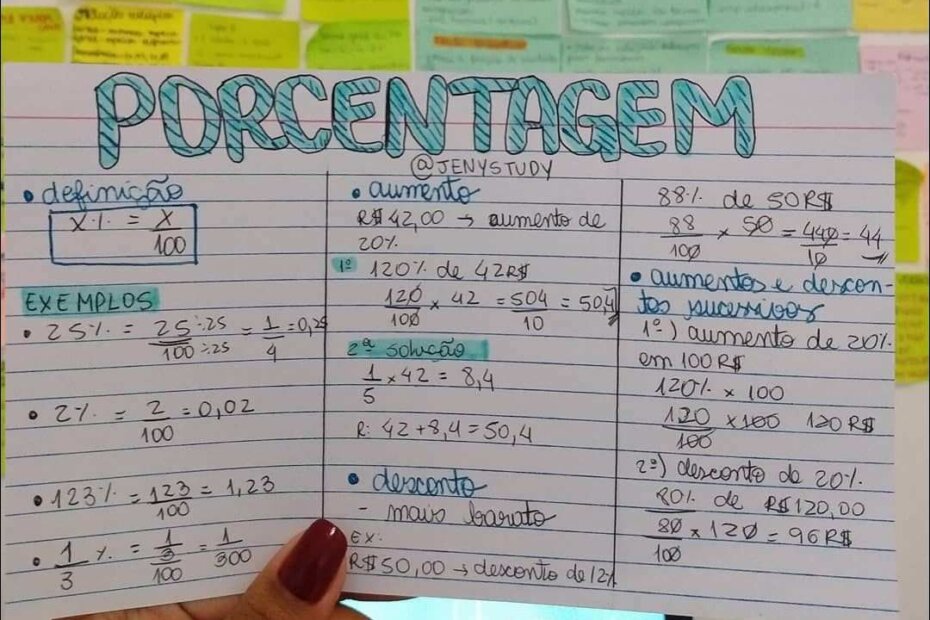 PORCENTAGEM
@JENYSTUDY
• definição
x% = x/100
EXEMPLOS
• 25% = 25÷25/100÷25 = 1/4 = 0,25
• 2% = 2/100 = 0,02
• 123% = 123/100 = 1,23
• 1/3 % = 1/3/100 = 1/300
• aumento
R$42,00 → aumento de
20%
1º 120% de 42R$
120/100 × 42 = 504/10 = 50,4
2ª solução
1/5 × 42 = 8,4
R: 42+8,4=50,4
• desconto
- mais barato
EX:
R$50,00 → desconto de 12%
88% de 50R$
88/100 × 50 = 440/10 = 44
• aumentos e descon-
tos sucessivos
1º) aumento de 20%
em 100R$
120% × 100
120/100 ×100 120R$
2º) desconto de 20%
80% de R$120,00
80/100 × 120 = 96R$